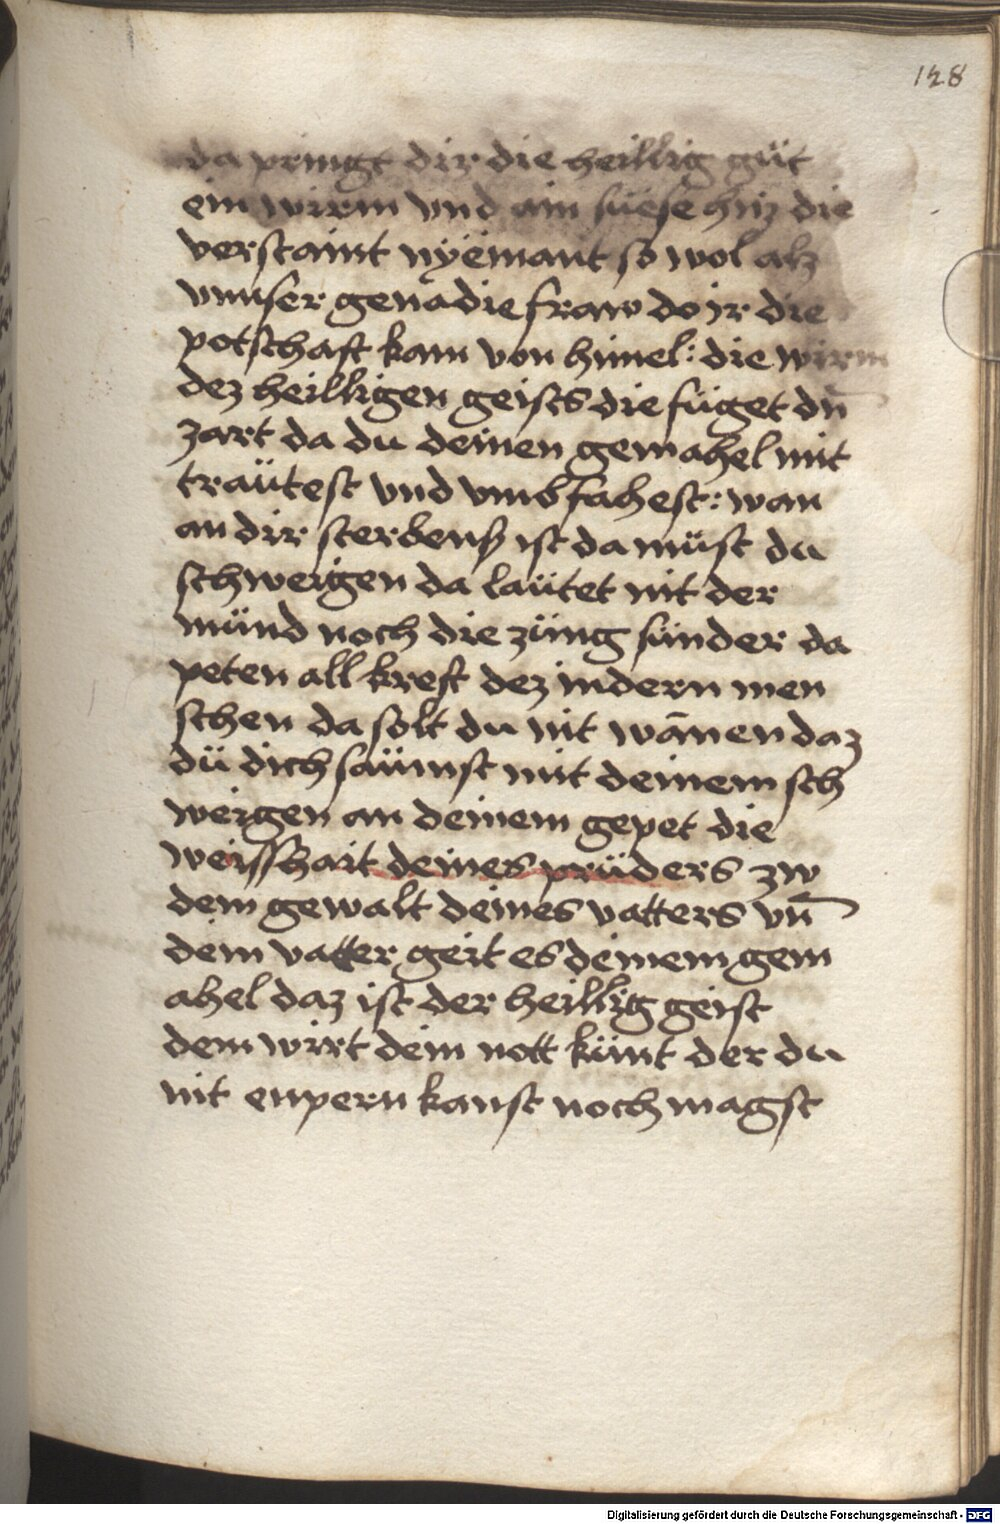 148
da pringt dir die heillig güt
ein wirm vnd ain süese hiz die
verstaint nÿemant so wol alz
vnnser genadie fraw do ir die
potschaft kam von himel: die wirm
dez heilligen geists die füget dn̄
zart da du deinen gemahel mit
traütest vnd vmbfahest: wan
an dir sterbens ist da müst du
schweigen da laütet nit der
münd noch die züng sünder da
peten all kreft dez indern men
schen da solt du nit wānen daz
dü dich saümst mit deinem sch
weigen an deinem gepet die
weisshait deines prüders zw
dem gewalt deines vatters vn̄
dem vatter geit es deinem gem
ahel daz ist der heillig geist
dem wirt dein nott künt der du
nit enpern kanst noch magst
Digitalisierung gefördert durch die Deutsche Forschungsgemeinschaft - DFG